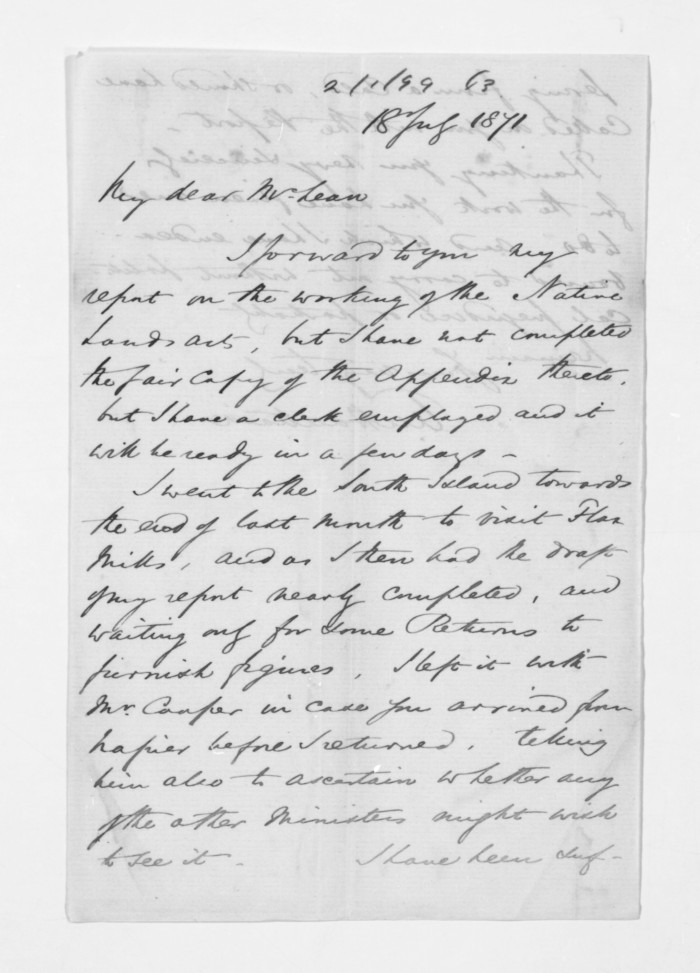 18 July 1871
My dear McLean
I forward to you my
report on the working of the Native
Lands acts, but I have not completed
the fair copy of the Appendix thereto,
but I have a clerk employed and it
will be ready in a few days –
I went to the South Island towards
the end of last month to visit Flax
Mills, and as I then had the draft
of my report nearly completed, and
waiting only for some Returns to
furnish figures, I left it with
Mr. Cooper in case you arrived from
Napier before I returned, telling
him also to ascertain whether any
of the other Ministers might wish
to see it – I have been